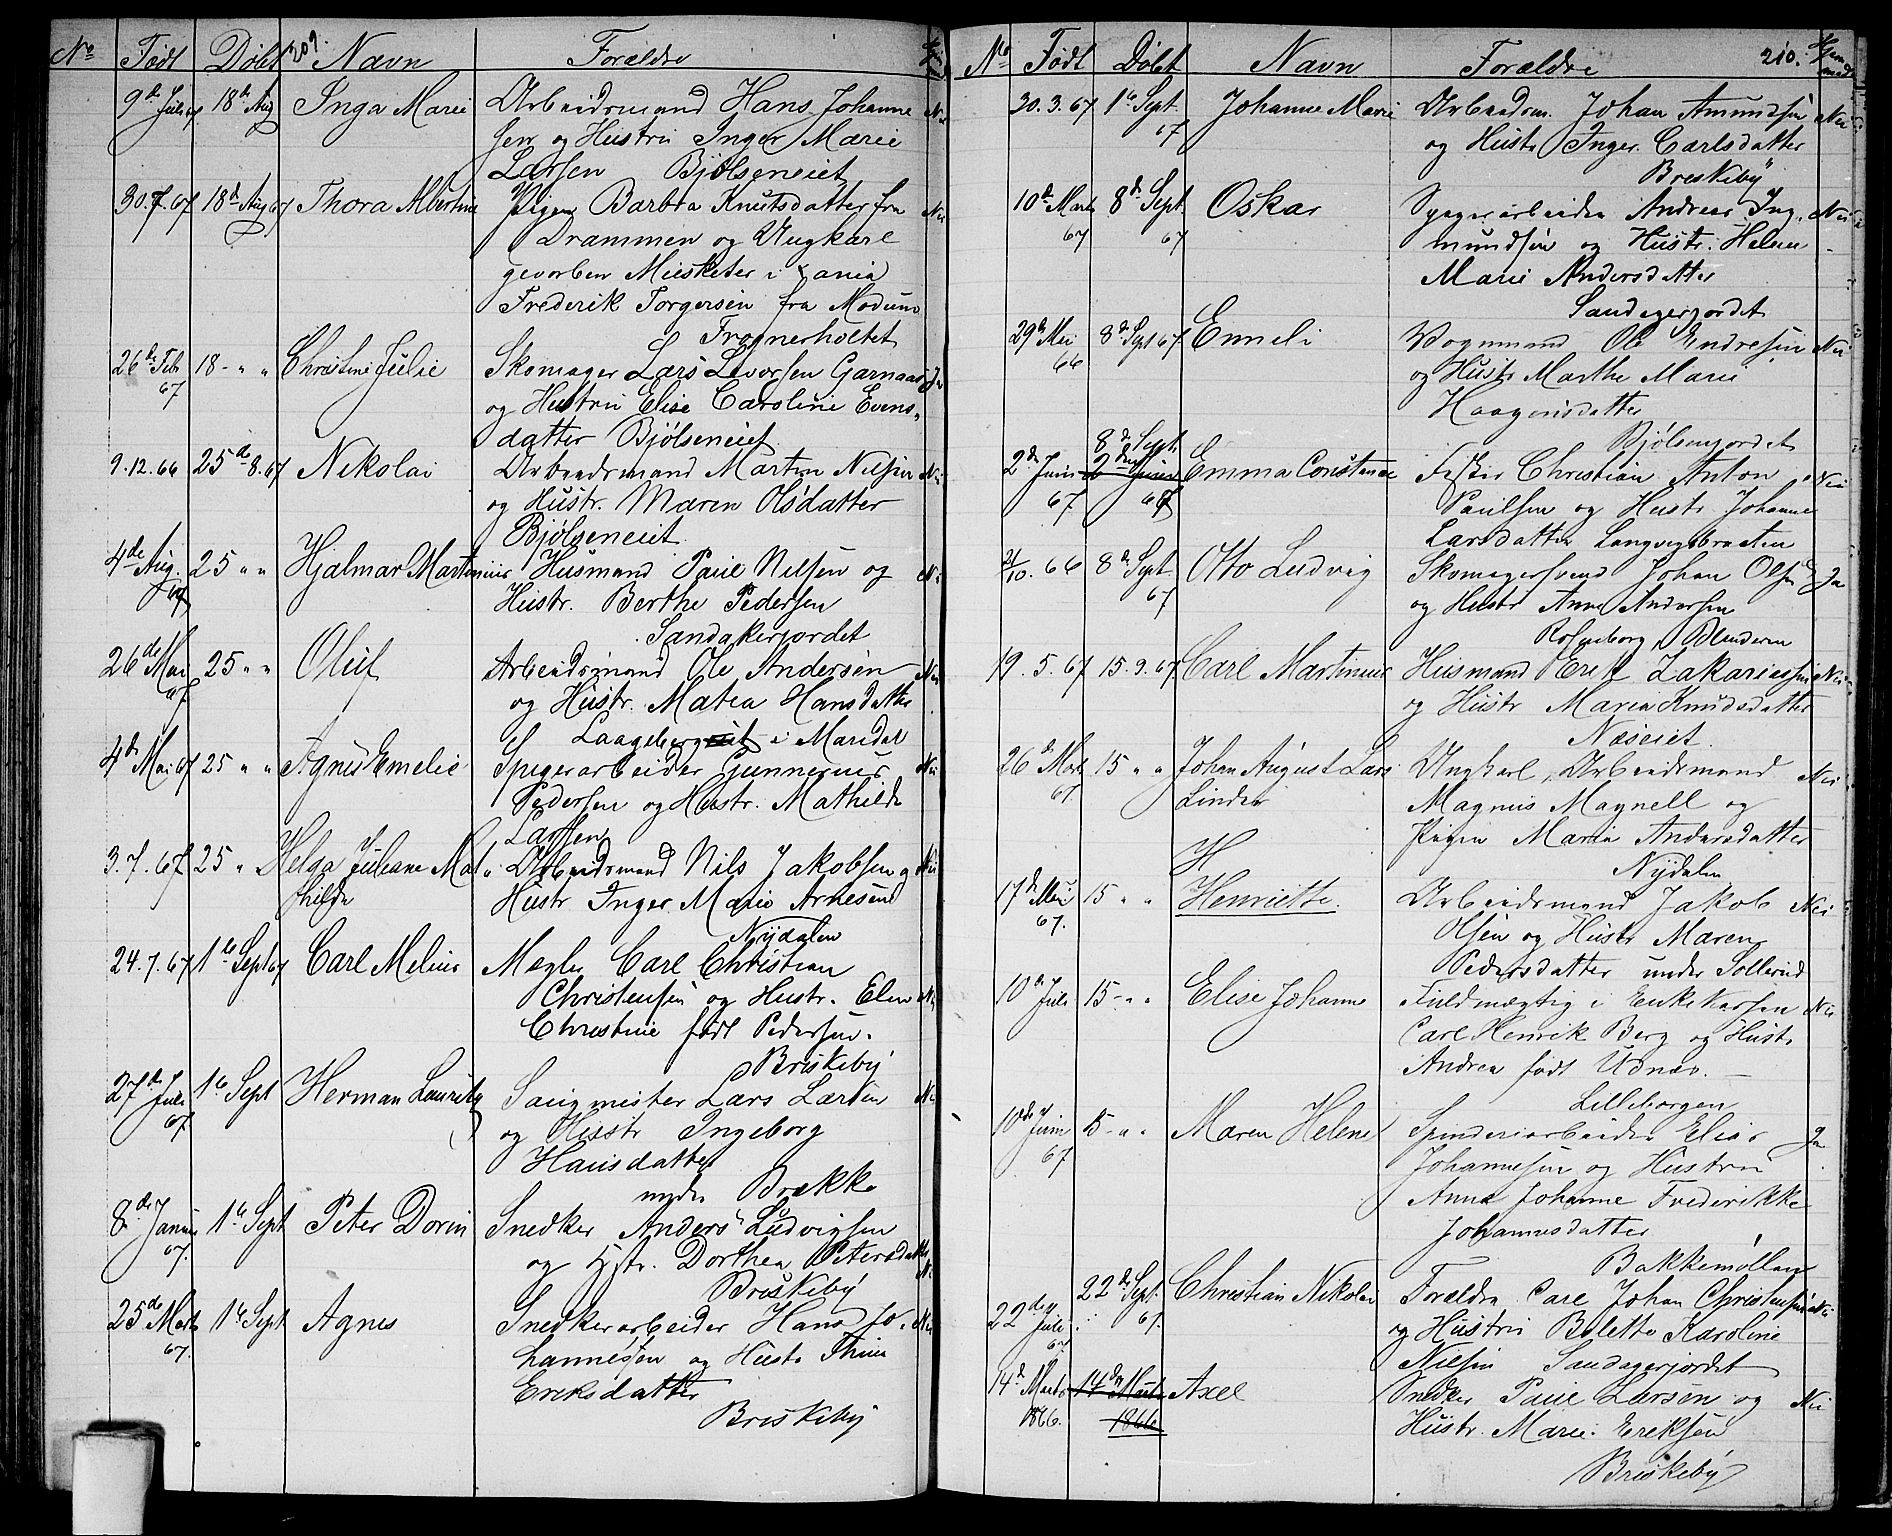 No Født Døbt 209. Navn Forældre
9de Juli 67 18de Aug Inga Marie Arbeidsmand Hans Johanne Nei
sen og Hustru Inger Marie
Larsen Bjølseneiet
30.7.67 18de Aug 67 Thora Albertine Pigen Barbra Knutsdatter fra Nei
Drammen og Ungkarl
gevorben Musketer i
Frederik Torgersen fra Modum
Frognerholtet
26de Feb 67 18 - " " Christine Julie Skomager Lars Levorsen Garnaas Ja
og Hustru Elise Caroline Evens-
datter Bjølseneiet
9.12.66 25de 8.67 Nikolai Arbeidsmand Martin Nilsen Nei
og Hustr. Maren Olsdatter
Bjølseneiet
4de Aug. 67 25 " " Hjalmar Martinius Husmand Paul Nilsen og Nei
Hustr. Berthe Pedersen
Sandakerjordet
26de Mai 67 25 " " Oluf Arbeidsmand Ole Andersen Nei
og Hustr. Matea Hansdatter
Laagsberg i Maridal
4de Mai 67 25 " " Agnes Emelie Spigerarbeider Gunnerius Nei
Pedersen og Hustr. Mathilde
Larsen
3.7.67 25 " Helga Juliane Mat- Arbeidsmand Nils Jakobsen og Nei
hilde Hustr Inger Marie Arnesen
Nydalen
24.7.67 1te Sept 67 Carl Melius Mægler Carl Christian
Christensen og Hustr. Elen Nei
Christine født Pedersen.
Briskeby
27de Juli 67 1te Sept Herman Lauritz Saugmester Lars Larsen Nei
og Hustr Ingeborg
Hansdatter
nedre Brække
8de Januar 67. 1te Sept Peter Dorin Snedker Anders Ludvigsen
og Hstr. Dorthea Petersdatter
Briskeby Nei
25de Marts 67. 1te Sept Agnes Snedkerarbeider Hans Jo- Nei
hannesen og Hustr Thine
Eriksdatter
Briskeby
No Født Døbt Navn Forældre 210.
30.3.67 1te Sept. 67 Johanne Marie Arbeidsm. Johan Amundsen Nei
og Hustr Inger Carlsdatter
Briskeby
10de Marts 67 8de Sept. 67 Oskar Spigerarbeider Andreas Ing. Nei
mundsen og Hustr. Helene
Marie Andersdatter
Sandagerjordet
29de Mai 66 8de Sept 67 Enneli Vognmand Ole Endresen Nei
og Hustr Marthe Marie
Haagensdatter
Bjølsenjordet
8de Sept.
2de Juni 67 67 Emma Constance Fisker Christian Anton Nei
Paulsen og Hustr Johanne
Larsdatter Langvigsbraaten
21/10.66 8de Sept. 67 Otto Ludvig Skomagersvend Johan Olsen Ja
og Hustr Anne Andersen
Rosenborg, Blinderen
19.5.67 15.9.67 Carl Martinius Husmand Erik Zakariassen Nei
og Hustr Maria Knudsdatter
Næseiet.
26de Marts 67. 15 " " Johan August Lars Ungkarl, Arbeidsmand Nei
Linder Magnus Magnell og
Pigen Maria Andersdatter
H Nydalen
17de Mai 67. 15 " " Henriette. Arbeidsmand Jakob Nei
Olsen og Hustr Maren
Pedersdatter under Sollerud
10de Juli 15 - " " Elise Johanne Fuldmægtig i Enkekassen Nei
Carl Henrik Berg og Hustr
Andrea født Udnæs. -
Lilleborgen
10de Juni 67 15 - " " Maren Helene Spinderiarbeider Elias Ja
Johannesen og Hustru
Anne Johanne Frederikke
Johannesdatter
Bakkemøllen
22de Juli 67 22de Sept. 67. Christian Nikolai Forældre Carl Johan Christensen Nei
og Hustru Bolette Karoline
Nilsen Sandagerjordet
14de Marts 1866. 14de Marts 1866 Axel Snedker Paul Larsen og Nei
Hustr. Marie Eriksen
Briskeby